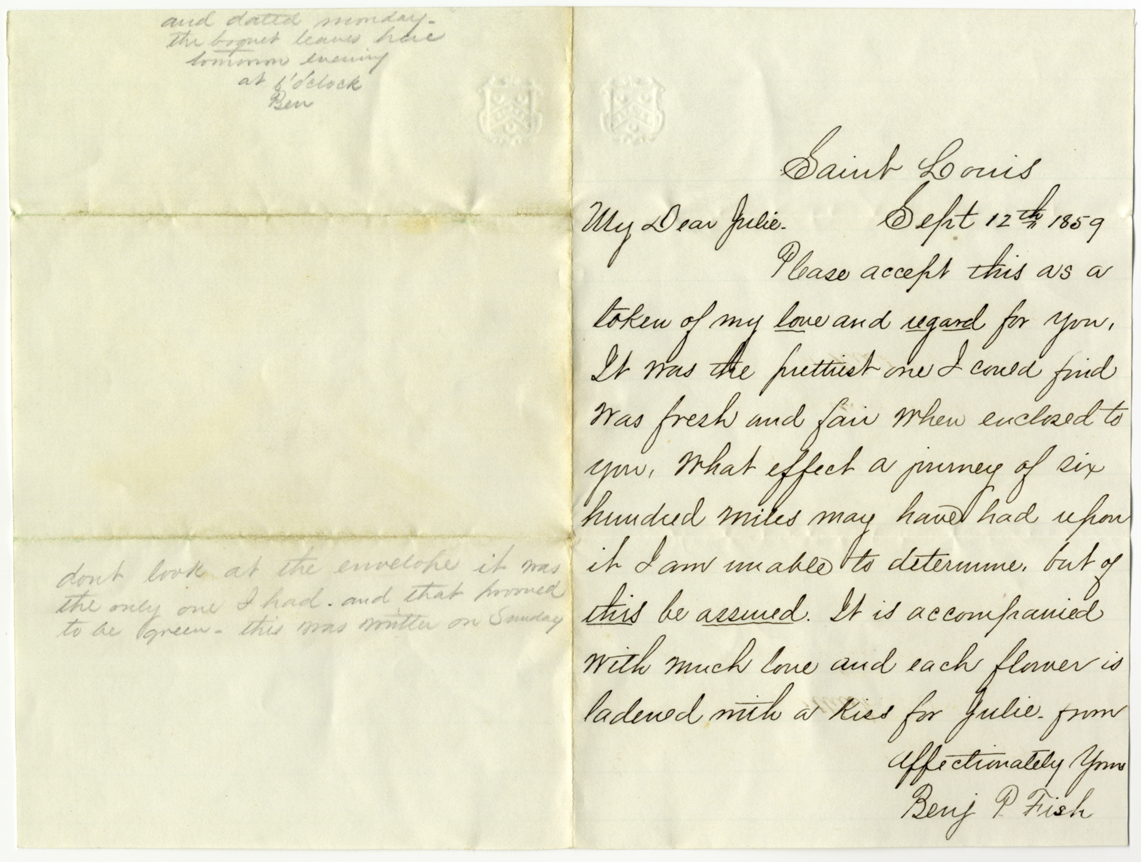 Saint Louis
My Dear Julie. Sept 12th 1859
Please accept this as a
token of my love and regard for you,
It was the prettiest one I could find
was fresh and fair when enclosed to
you, What effect a journey of six
hundred miles may have had upon
it I am unable to determine, but of
this be assured. It is accompanied
with much love and each flower is
ladened with a kiss for Julie. from
Affectionately Yours
Benj P. Fish
dont look at the envelope it was
the only one I had. and that prooved
to be green- this was written on Sunday
and dated monday-
the boquet leaves here
tomorrow evening
at o'clock
Ben